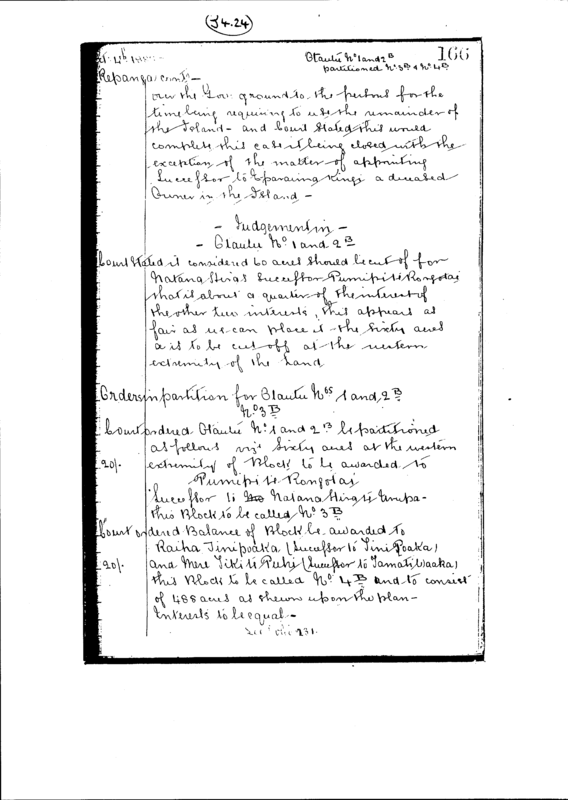 (J4.24)
166
Otautu No 1 and 2B
partitioned No 3B & No 4B
Repanga cont—
over the Gov ground to the persons for the
time being requiring to use the remainder of
the Island — and Court stated this would
complete this case it being closed with the
exception of the matter of appointing
Successor to Kingi a deceased
Owner in the Island —
— Judgement in —
— Otautu No 1 and 2B
Court Stated it considered 60 acres should be cut off for
Natana Successor Pumipi te Rongotai
that is about a quarter of the interest of
the other two interests, this appears as
fair as we can place it — the Sixty acres
is to be cut off at the western
extremity of the Land
Orders in partition for Otautu Nos 1 and 2B
No 3B
Court ordered Otautu No 1 and 2B be partitioned
as follows viz Sixty acres at the western
20/- extremity of Block to be awarded to
Pumipi te Rongotai
Successor to Natana
this Block to be called No 3B
Court ordered Balance of Block be awarded to
Raiha Tinipoaka (Successor to Tini Poaka)
20/- and Mere Tiki te Puhi (Successor to Tamati Waaka)
this Block to be called No 4B and to consist
of 488 acres as shewn upon the plan —
Interests to be equal —
231.